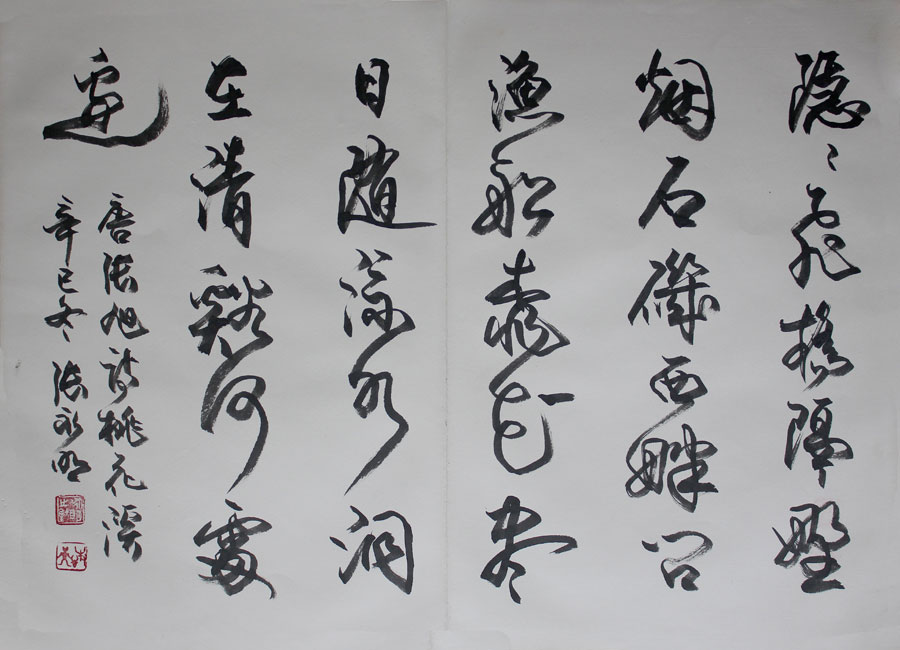 隱〻飛橋隔野
烟石磯西畔问
漁船桃花尽
日隨流水洞
在清谿何處
邊
唐張旭詩桃花溪
辛巳冬張永明